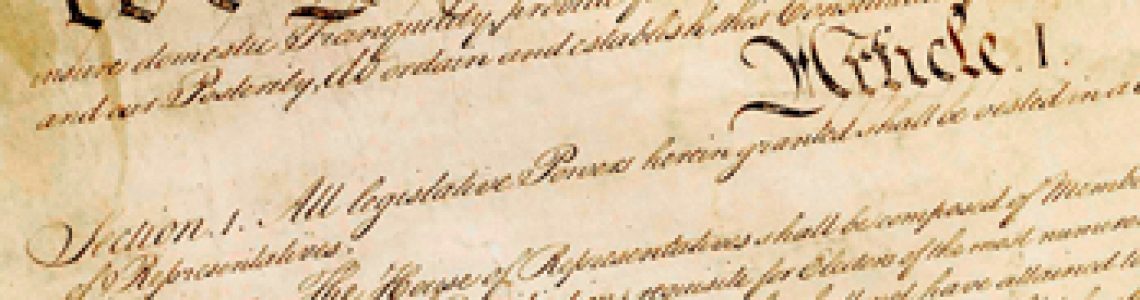 insure domestic Tranquility, provide
and our Posterity, do ordain and establish this Constitution
Article. I.
Section. 1. All legislative Powers herein granted shall be vested in a
of Representatives.
The House of Representatives shall be composed of Memb
requisite for Electors of the most numero
have attained to